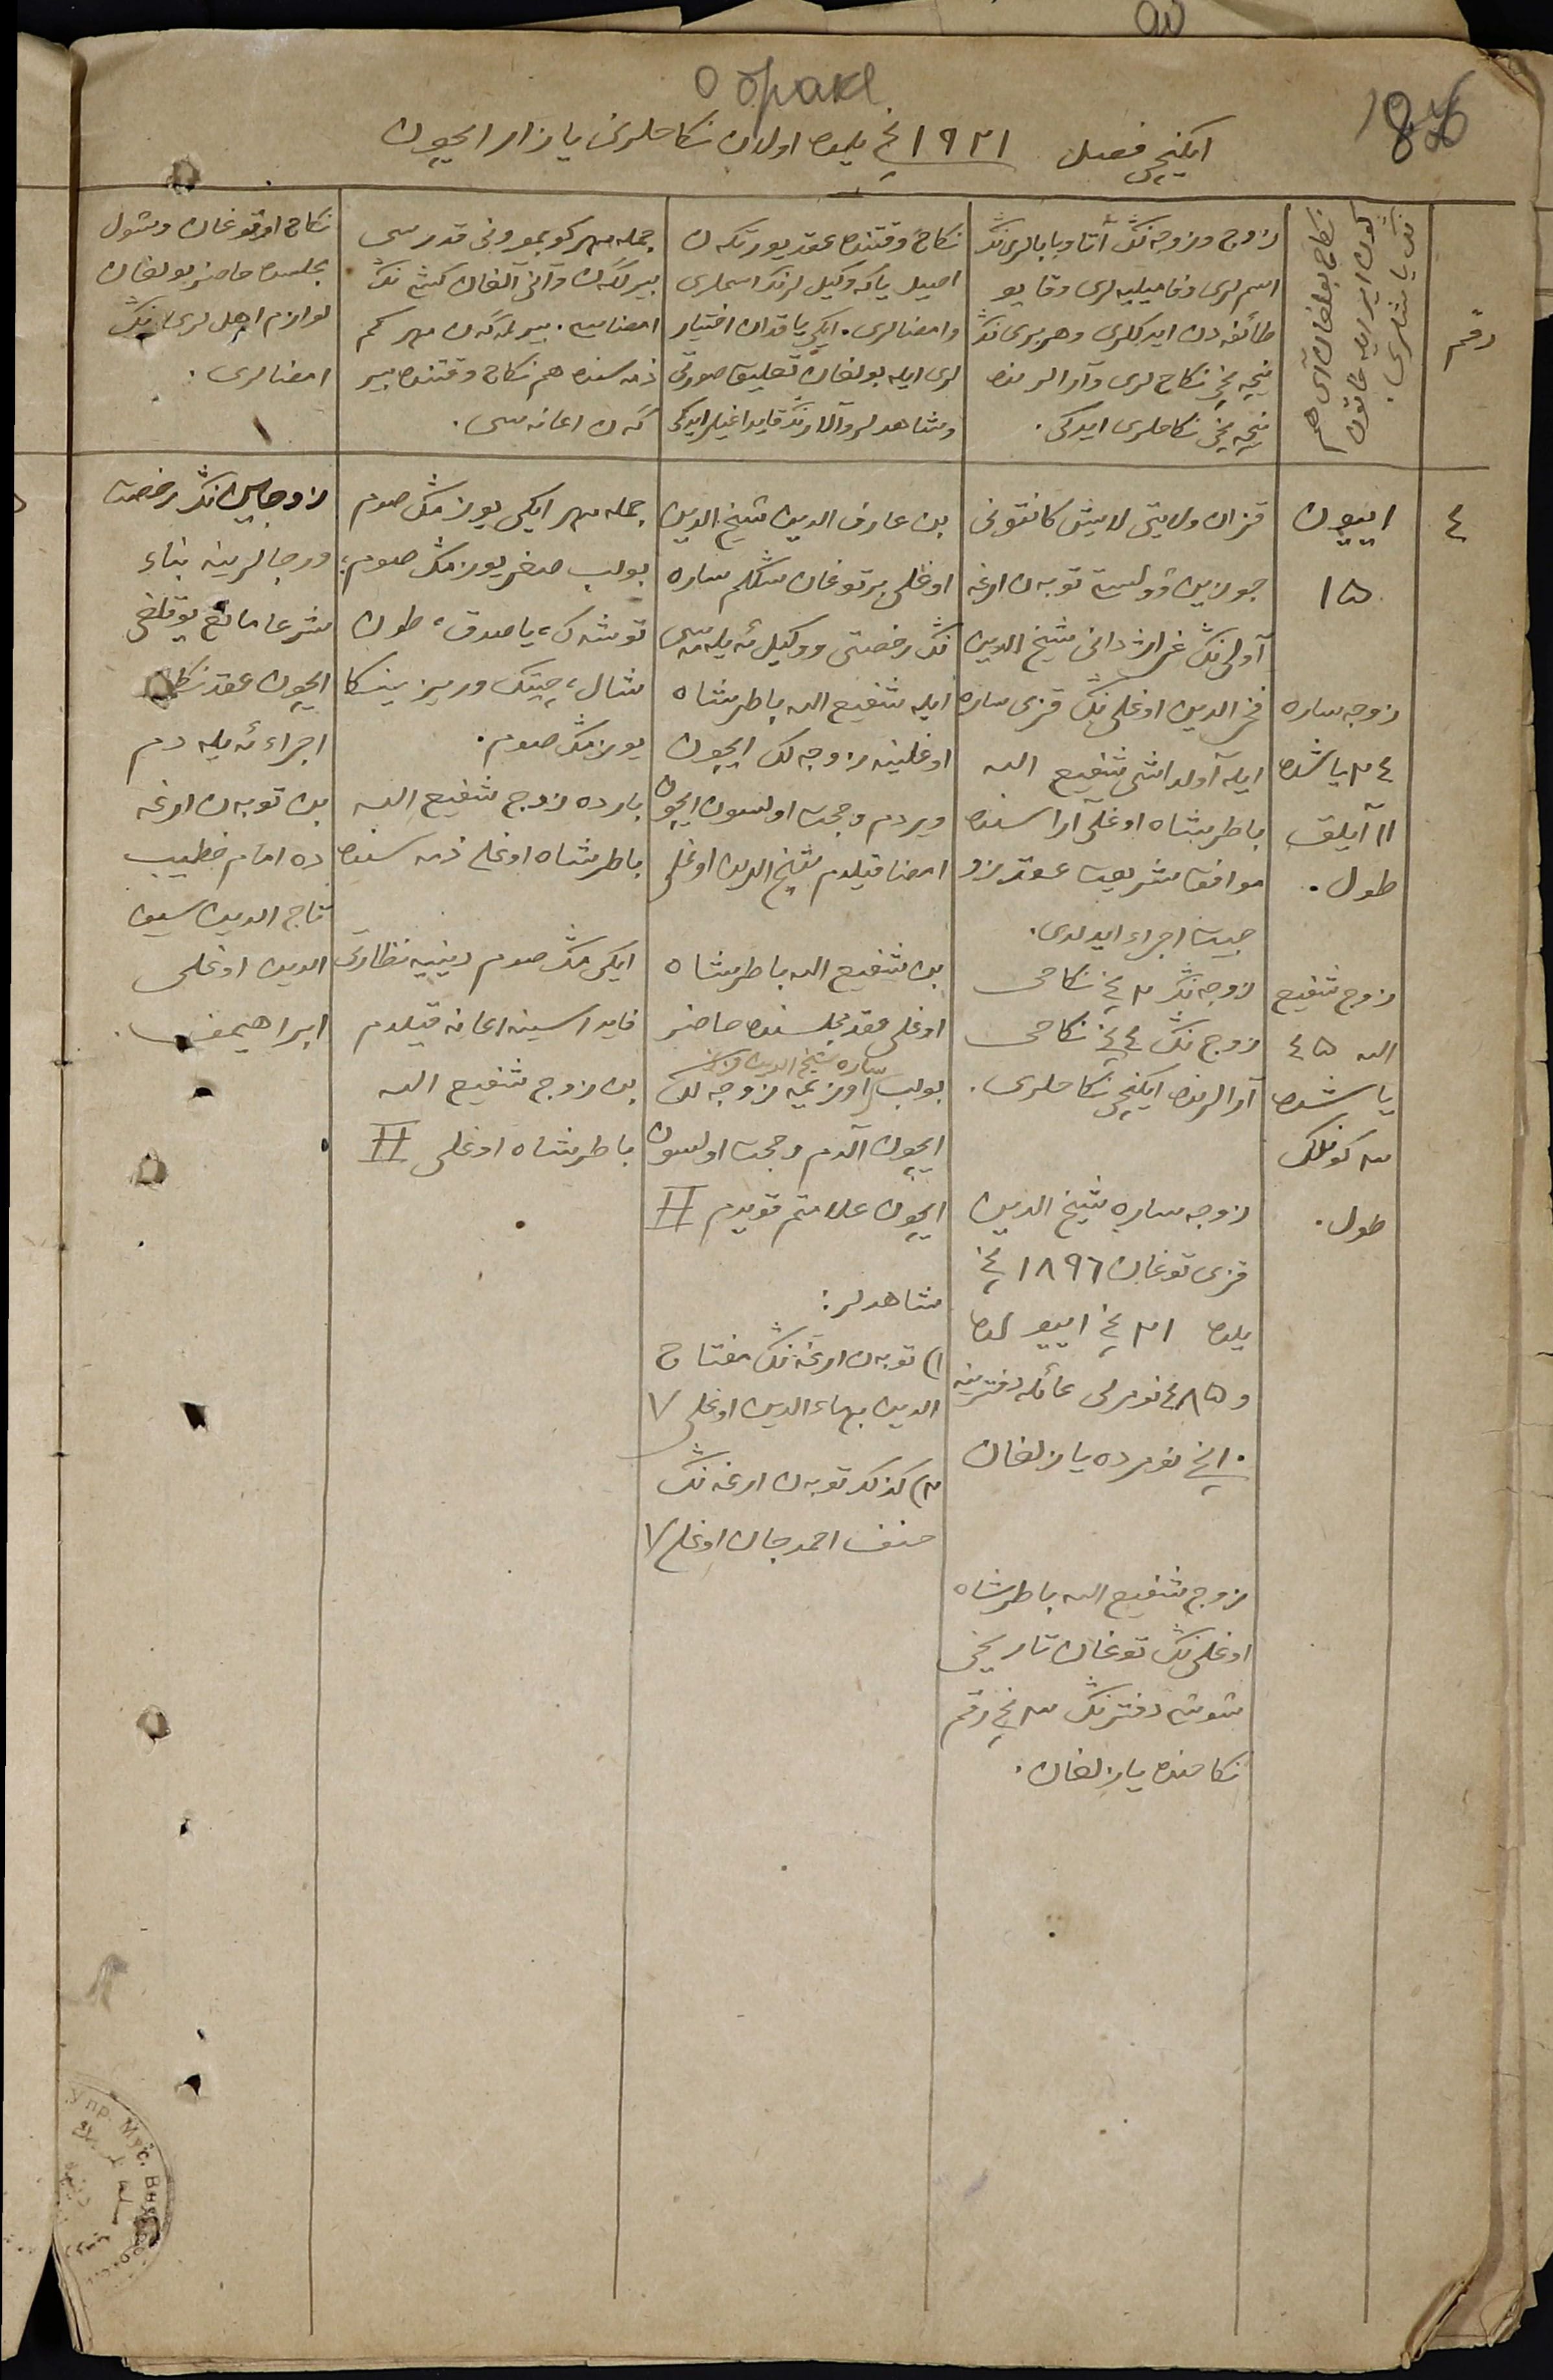 о браке
ایکنچی فصل ۱۹۲۱ نچی یلده اولان نکاحلرنی یازار ایچون
رقم
نکاح بولغان آی هم
کون ایر ایله خاتون
نڭ یاشلری.
زوج و زوجه نڭ آتا و بابالری نڭ
اسم لری و فامیلیه لری و قایو
طائفه دن ایدکلری و هر بری نڭ
نیچه نچی نکاح لری و آرالرنده
نیچه نچی نکاحلری ایدکی.
نکاح وقتنده عقد یورتکەن
اصیل یاکه وکیل لرنڭ اسملری
و امضالری. ایکی یاقدان اختیار
لری ایله بولغان تعلیق صورتی
و شاهدلر و آلارنڭ قایدا غیلر ایدکی
جمله مهر کوبمو و نی قدرسی
بیرلگەن و آنی آلغان کشی نڭ
امضاسی. بیرلمەگەن مهر کم
ذمه سنده هم نکاح وقتنده بیر
گەن اعانه سی.
نکاح اوقوغان و شول
مجلسده حاضر بولغان
لوازم اهل لری نڭ
امضالری.
٤
ایيون
١٥
زوجه ساره
٢٤ یاشده
١١ آیلق
طول.
زوج شفیع
الله ٤٥
یاشده
کونلک
طول.
قزان ولایتی لایش کانتونی
توبەن ارغه
آولی نڭ شیخ الدین
فخر الدین اوغلی نڭ قزی ساره
ایله آولداشی شفیع الله
باطرشاه اوغلی آراسنده
موافق شریعت عقد زو
جیت اجراء ایدلدی.
زوجه نڭ ٢ نچی نکاحی
زوج نڭ ٤ نچی نکاحی
آرالرنده ایکنچی نکاحلری.
زوجه ساره شیخ الدین
قزی توغان ١٨٩٦ نچی
یلده ٢١ نچی ایيولده
و ٤٨٥ نومرلی عائله دفترینه
١٠ نچی نومرده یازلغان
زوج شفیع الله باطرشاه
اوغلی نڭ توغان تاریخی
شوشی دفترنڭ ٣ نچی رقم
نکاحنده یازلغان.
بن عارف الدین شیخ الدین
اوغلی برتوغان سڭلم ساره
نڭ رخصتی و وکیل ئه یله مه سی
ایله شفیع الله باطرشاه
اوغلینه زوجه لک ایچون
ویردم و حجت اولسون ایچون
امضا قیلدم شیخ الدین اوغلی
بن شفیع الله باطرشاه
اوغلی عقد مجلسنده حاضر
ساره شیخ الدین قزین
بولب اوزیمه زوجه لک
ایچون آلدم و حجت اولسون
ایچون علامتم قویدم II
شاهدلر:
١) توبەن ارغه نڭ مفتاح
الدین بهاء الدین اوغلی V
٢) کذلک توبەن ارغه نڭ
حنف احمدجان اوغلی V
جمله مهر ایکی یوز مڭ صوم
بولب صغر یوز مڭ صوم؛
توشەک، یاصدق، طون
شال، چیتک و ریزینکا
یوز مڭ صوم.
بارده زوج شفیع الله
باطرشاه اوغلی ذمه سنده
ایکی مڭ صوم دینیه نظارتی
فایداسینه اعانه قیلدم
بن زوج شفیع الله
باطرشاه اوغلی II
زوجاین نڭ رخصت
و رجالرینه بناء
شرعا مانع یوقلغی
ایچون عقد نکاح
اجراء ئه یله دم
بن توبەن ارغه
ده امام خطیب
تاج الدین سیف
الدین اوغلی
ابراهیمف.
Упр. Мус. Внутр.